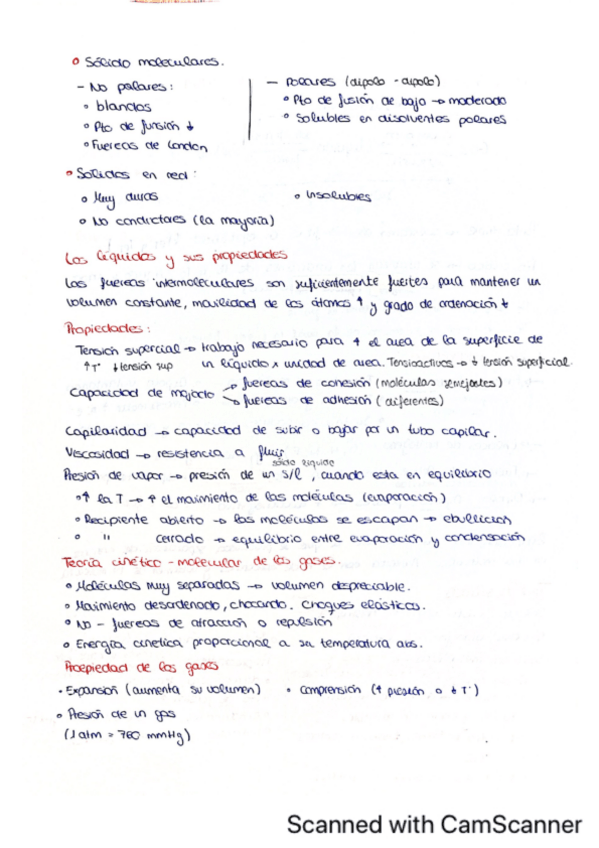 ° Sólido moleculares.
- No polares:
° blandos
° Pto de funsión ↓
° Fuerzas de London
- Polares (dipolo - dipolo)
° Pto de fusión de bajo → moderado
° Solubles en disolventes polares
° Solidos en red:
° Muy duros
° Insolubles
° No conductores (la mayoria)
Los líquidos y sus propiedades
Las fuerzas intermoleculares son suficientemente fuertes para mantener un
volumen constante, movilidad de los átomos ↑ y grado de ordenación ↓
Propiedades:
Tensión supercial → trabajo necesario para ↑ el area de la superficie de
↑Tª ↓tensión sup
un líquido x unidad de area. Tensioactivos → ↓ tensión superficial.
Capacidad de mojado → fuerzas de cohesión (moléculas semejantes)
→ fuerzas de adhesión (diferentes)
Capilaridad → capacidad de subir o bajar por un tubo capilar.
Viscosidad → resistencia a fluir
sólido líquido
Presión de vapor → presión de un S/L, cuando esta en equilibrio
° ↑ la T → ↑ el movimiento de las moléculas (evaporación)
° Recipiente abierto → las moléculas se escapan → ebullición
° " cerrado → equilibrio entre evaporación y condensación
Teoría cinético - molecular de los gases.
° Moléculas muy separadas → volumen despreciable.
° Movimiento desordenado, chocando. Choques elásticos.
° No - fuerzas de atracción o repulsión
° Energía cinetica proporcional a su temperatura abs.
Proepiedad de los gases
· Expansión (aumenta su volumen)
° Comprensión (↑ presión o ↓ Tª)
° Presión de un gas
(1 atm = 760 mmHg)
Scanned with CamScanner